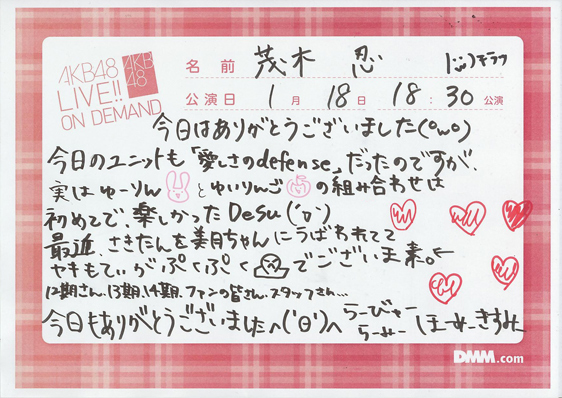 AKB48
LIVE!!
ON DEMAND
AKB
48
名前 茂木 忍
公演日 1月 18日 18:30 公演
今日はありがとうございました(OωO)
今日のユニットも「愛しさのdefense」だったのですが、
実はゆーりんとゆいりんごの組み合わせは
初めてで、楽しかったDesu('ο')
最近、さきたんを美月ちゃんにうばわれてて
ヤキもてぃがぷくぷくでございま素。
12期さん、13期、14期、ファンの皆さん、スタッフさん…
今日もありがとうございましたヘ('Θ')ヘ
らーびゅー
らーみー
DMM.com